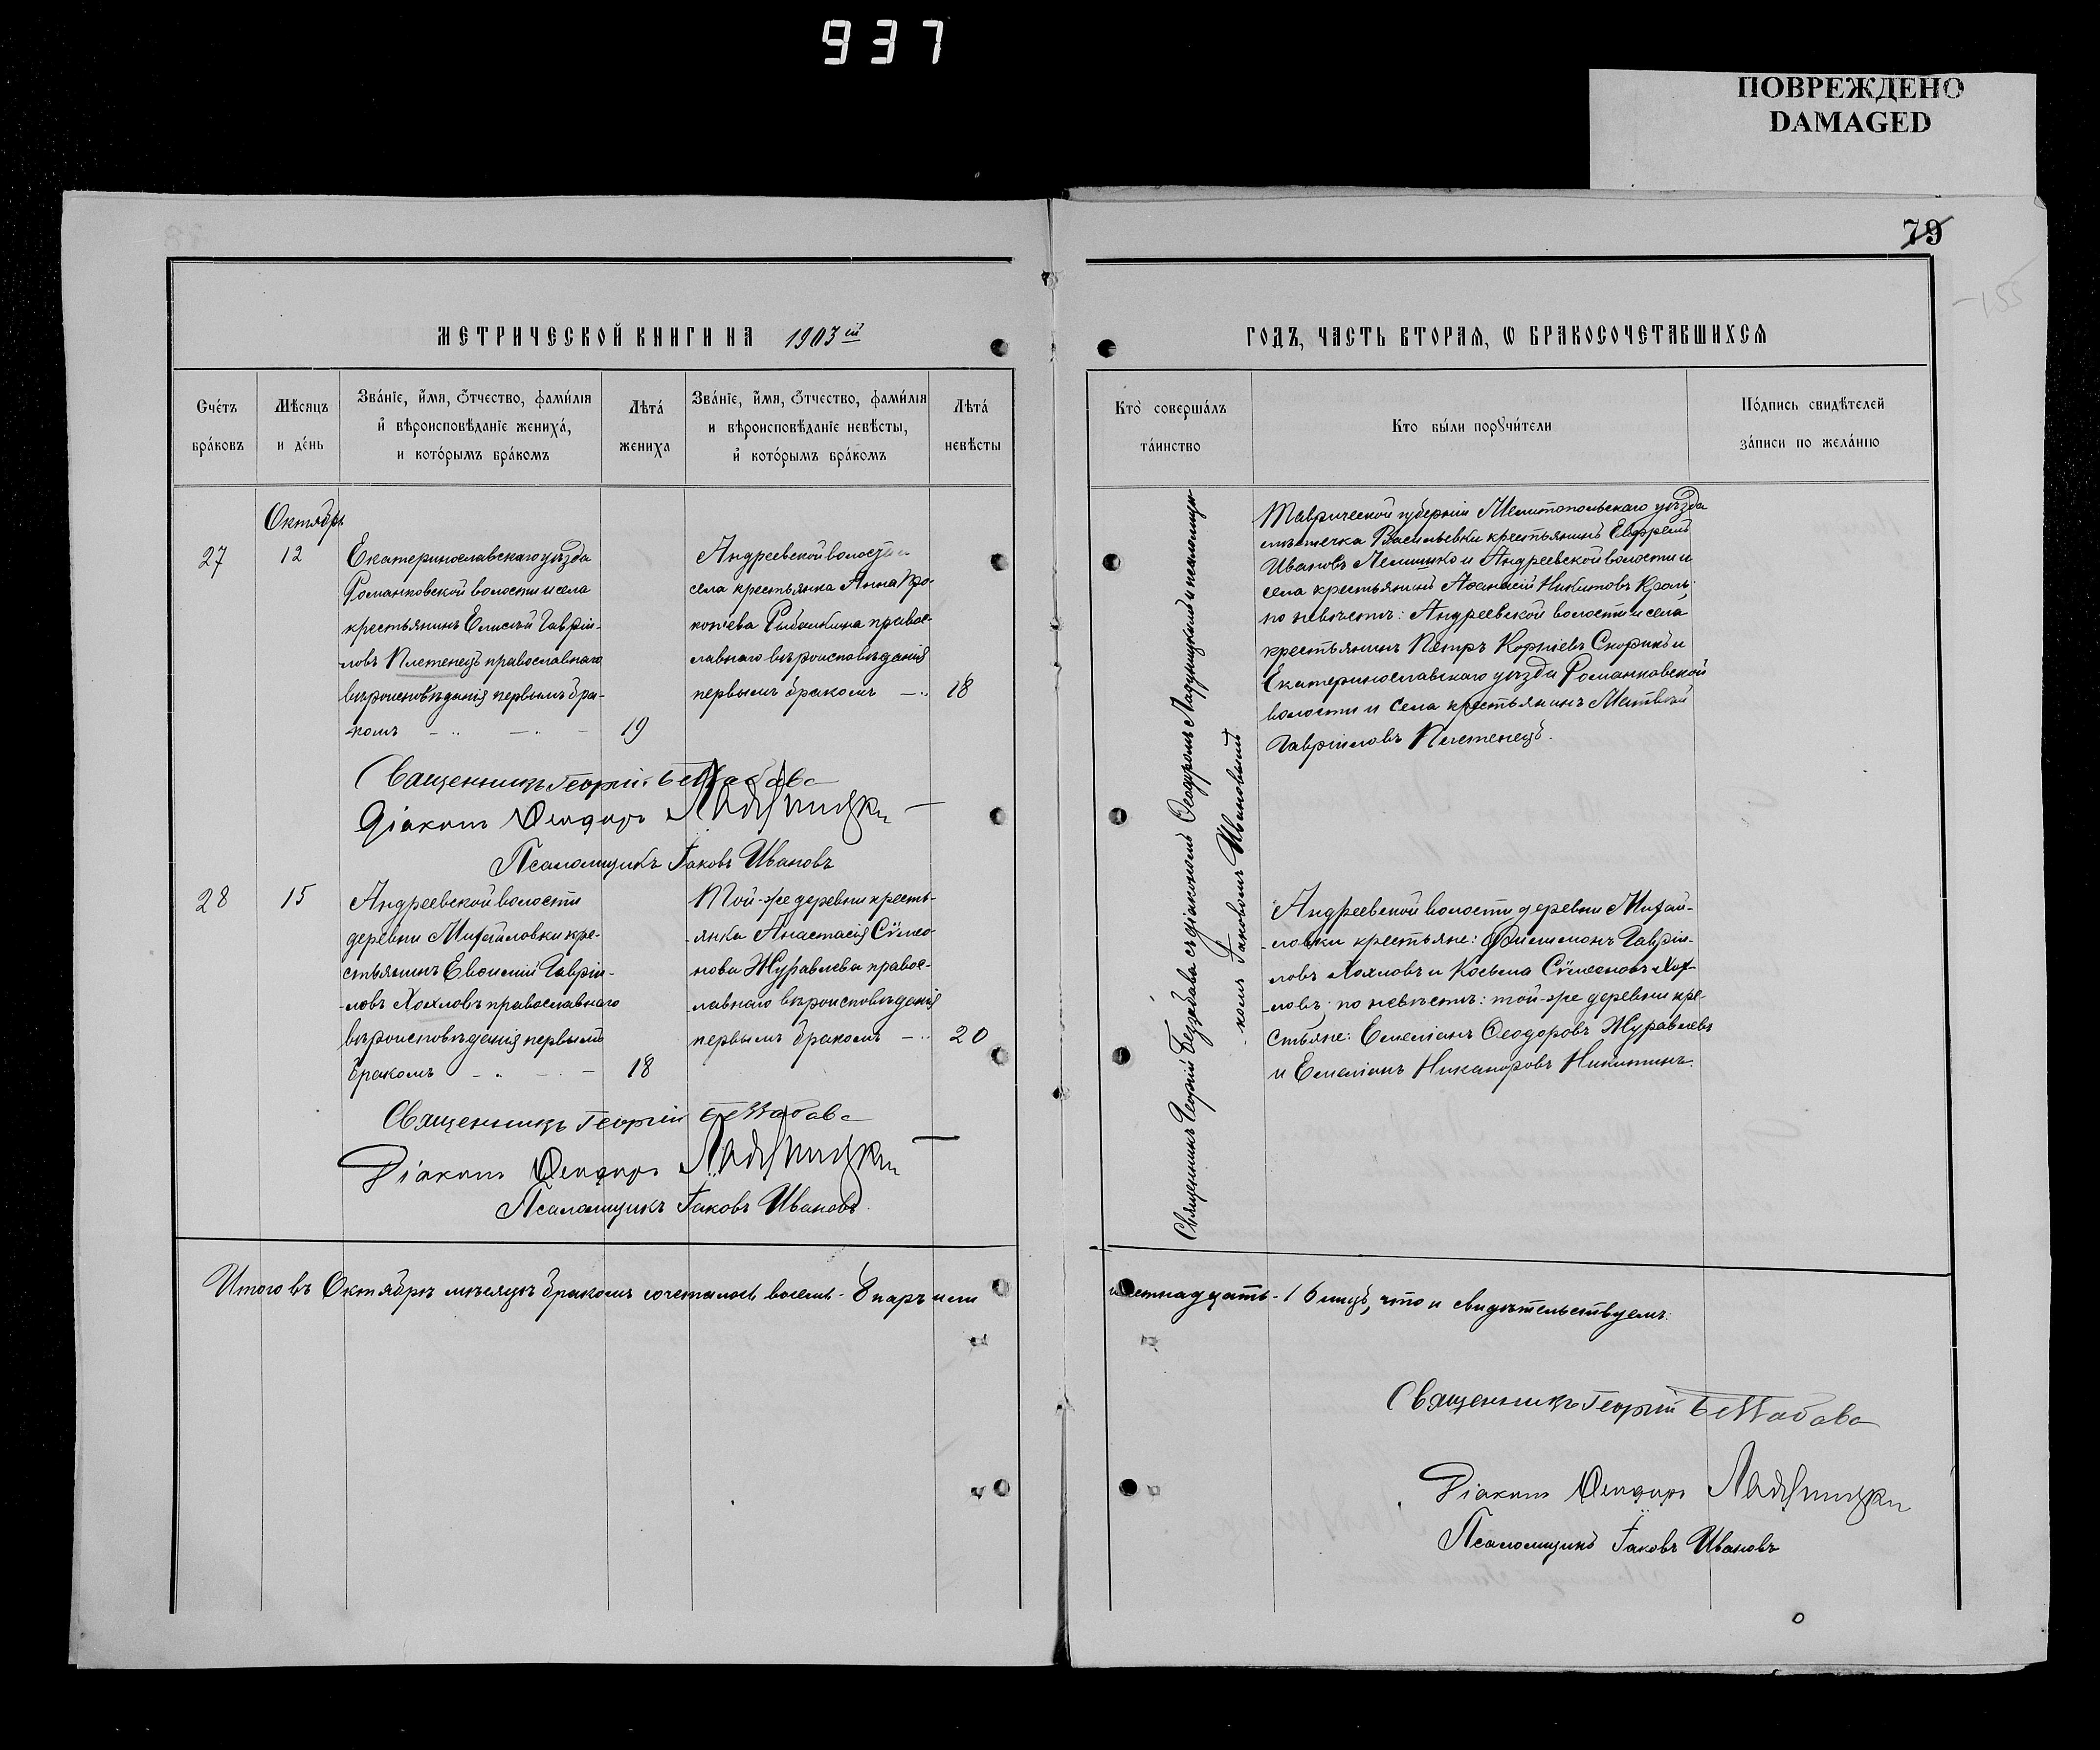 937
ПОВРЕЖДЕНО
DAMAGED
79
-155
МЕТРИЧЕСКОЙ КНИГИ НА 1903ій
ГОДЪ, ЧАСТЬ ВТОРАЯ, Ѡ БРАКОСОЧЕТАВШИХСЯ
Счетъ браковъ
Мѣсяцъ и день
Званіе, имя, отчество, фамилія и вѣроисповѣданіе жениха, и которымъ бракомъ
Лѣта жениха
Званіе, имя, отчество, фамилія и вѣроисповѣданіе невѣсты, и которымъ бракомъ
Лѣта невѣсты
Кто совершалъ таинство
Кто были поручители
Подпись свидѣтелей записи по желанію
Октябрь
27
12
Екатеринославскаго уѣзда
Романковской волости и села
крестьянинъ Елисей Гаврі-
ловъ Плетенецъ православнаго
вѣроисповѣданія первымъ бра-
комъ
19
Андреевской волости и
села крестьянка Анна Про-
копіева Рибалкина правос-
лавнаго вѣроисповѣданія
первымъ бракомъ
18
Священникъ Георгій Беззабава
Діаконъ Ѳеодоръ Ладухицкій
Псаломщикъ Іаковъ Ивановъ
28
15
Андреевской волости
деревни Михайловки кре-
стьянинъ Евѳимій Гаврі-
ловъ Хохловъ православнаго
вѣроисповѣданія первымъ
бракомъ
18
Той-же деревни кресть-
янка Анастасія Сѵмео-
нова Журавлева правос-
лавнаго вѣроисповѣданія
первымъ бракомъ
20
Священникъ Георгій Беззабава
Діаконъ Ѳеодоръ
Псаломщикъ Іаковъ Ивановъ
Итого въ Октябрѣ мѣсяцѣ бракомъ сочеталось восемь - 8 паръ или
Священникъ Георгій Беззабава съ діакономъ Ѳеодоромъ и псаломщи-
комъ Іаковомъ Ивановымъ
Таврической губерніи Мелитопольскаго уѣзда
мѣстечка Васильевки крестьянинъ Евфремъ
Ивановъ Лемишко и Андреевской волости и
села крестьянинъ Аѳанасій Никитовъ Кроль;
по невѣстѣ: Андреевской волости и села
крестьянинъ Петръ Корніевъ Скорикъ и
Екатеринославскаго уѣзда Романковской
волости и села крестьянинъ Матвѣй
Гавріиловъ Плетенецъ.
Андреевской волости деревни Михай-
ловки крестьяне: Филимонъ Гаврі-
ловъ Хохловъ и Косьма Сѵмеоновъ Хох-
ловъ; по невѣстѣ: той-же деревни кре-
стьяне: Емеліанъ Ѳеодоровъ Журавлевъ
и Емеліанъ Никаноровъ Никитинъ.
шестнадцать - 16 лицъ, что и свидѣтельствуемъ:
Священникъ Георгій Беззабава
Діаконъ Ѳеодоръ
Псаломщикъ Іаковъ Ивановъ